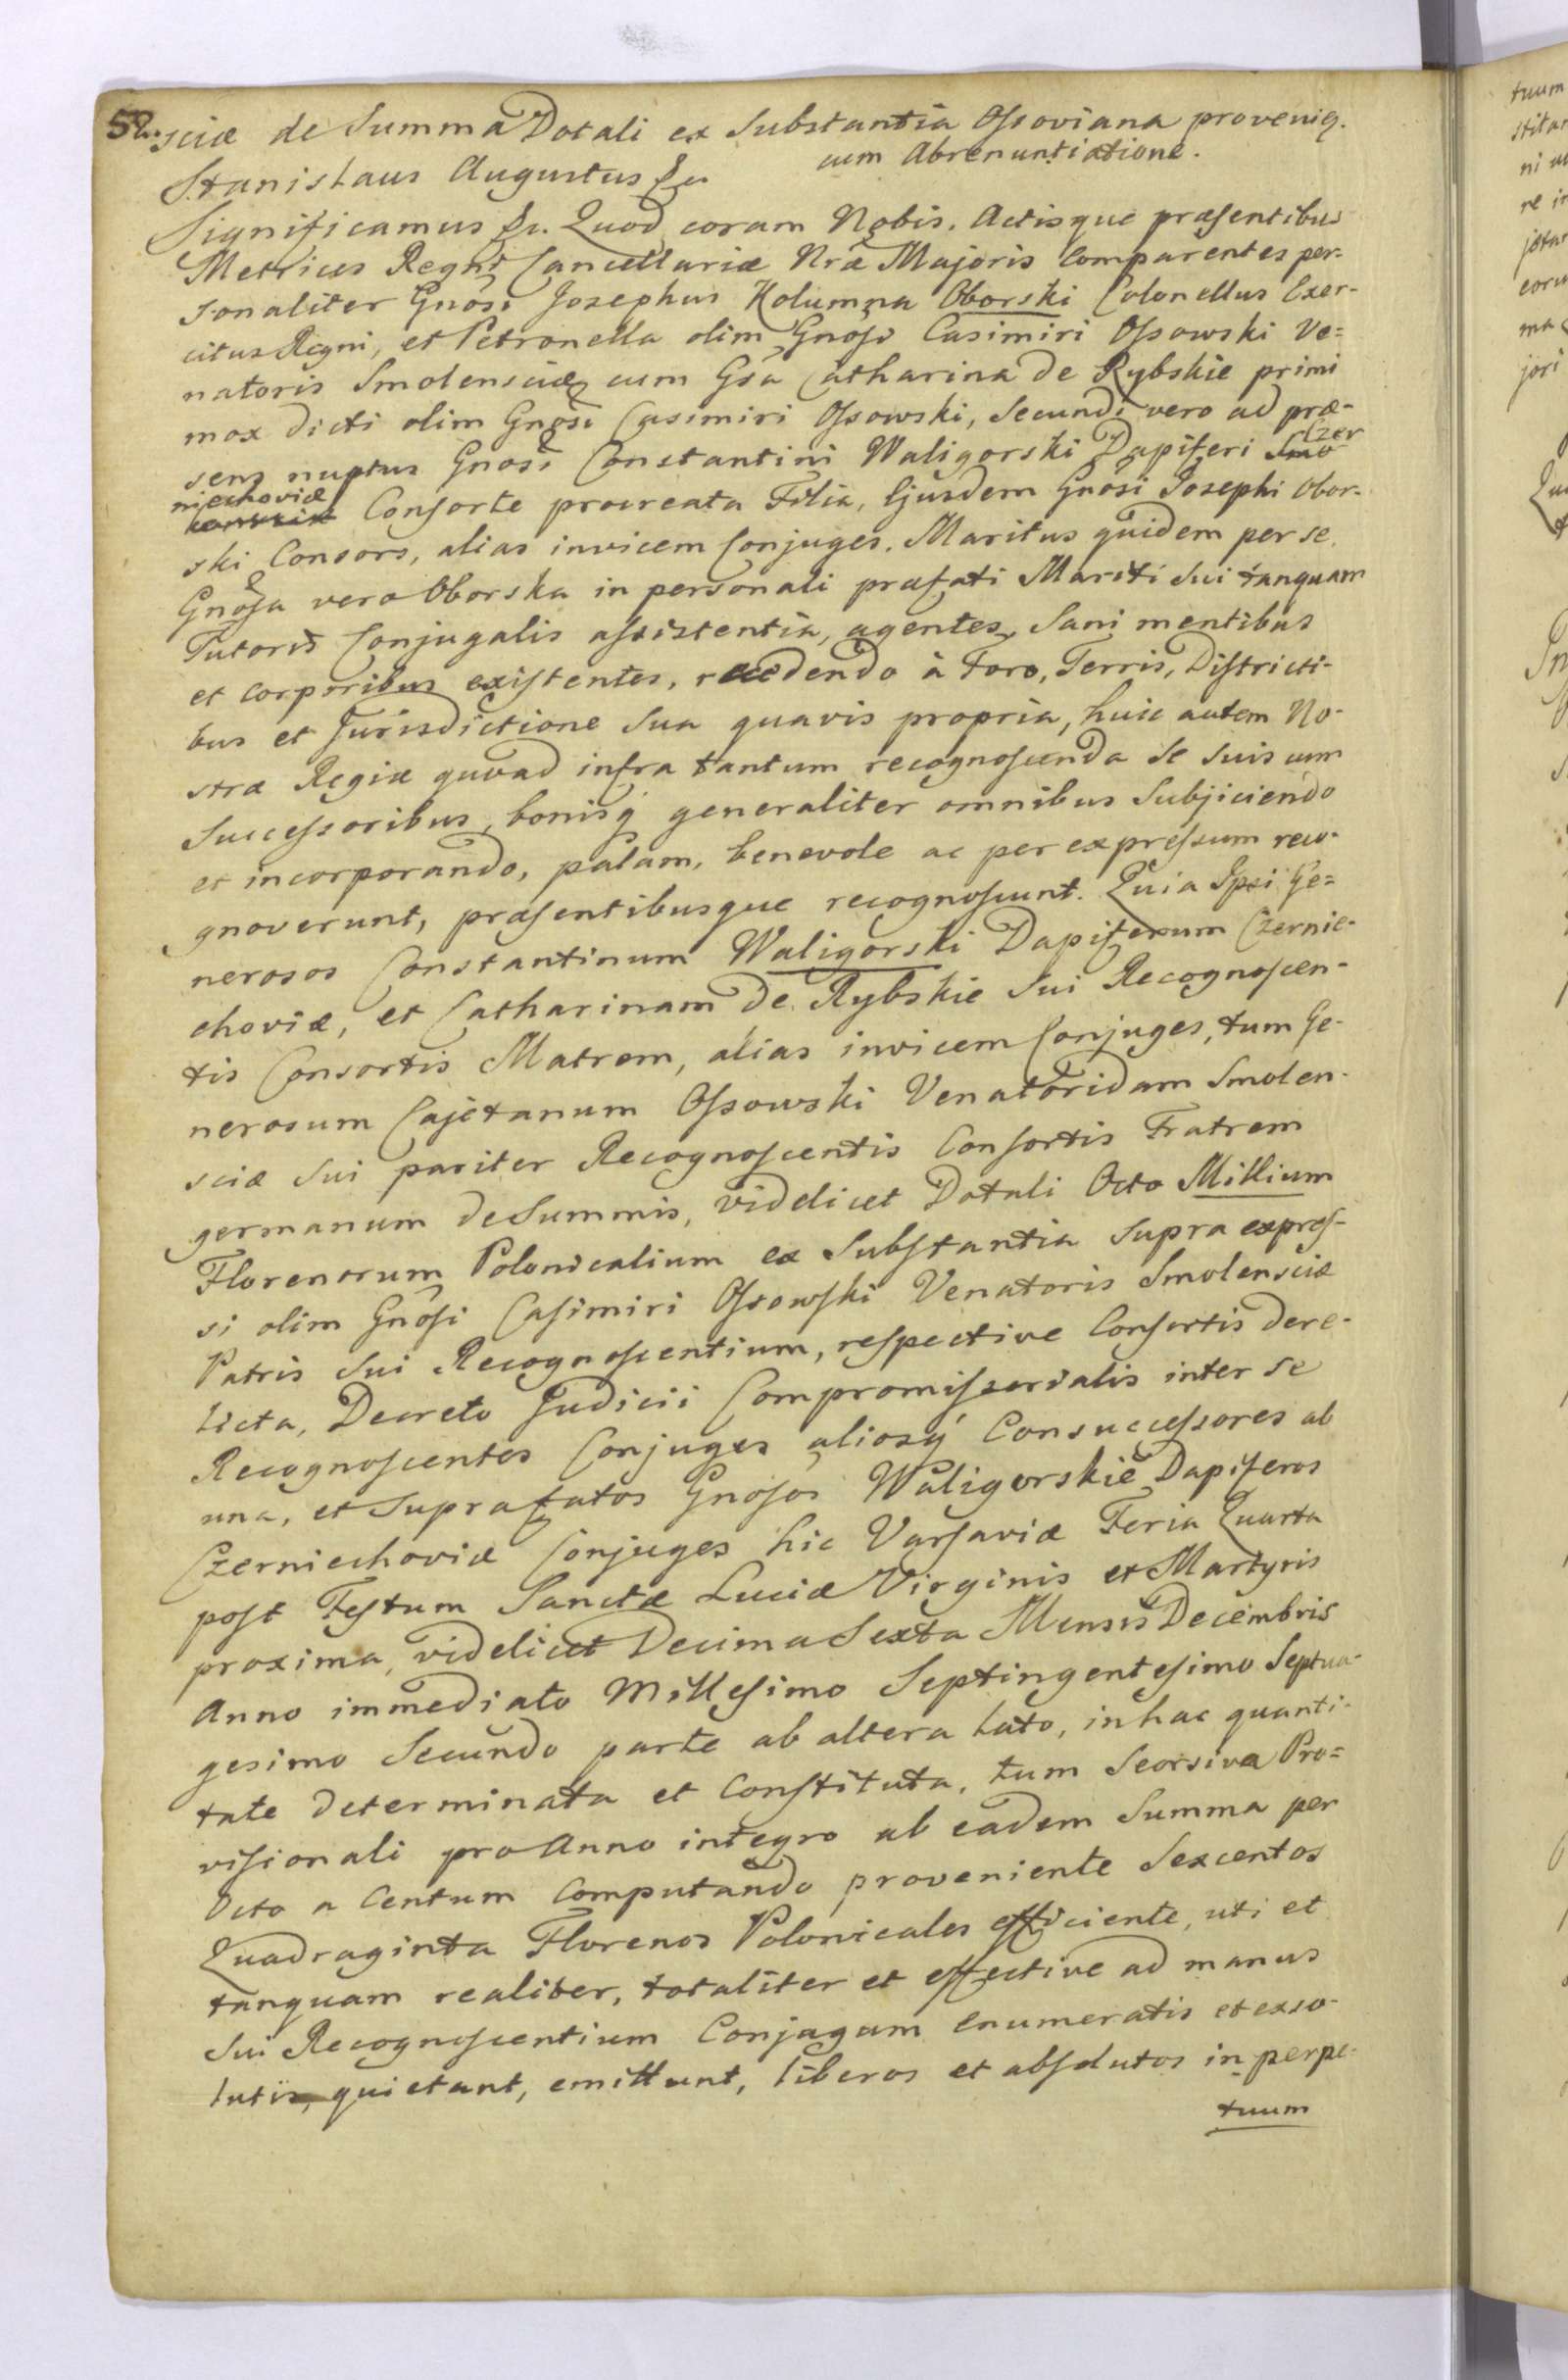 52.
sciæ de Summa Dotali ex Substantia Ossoviana provenie͞.
cum Abrenuntiatione.
Stanislaus Augustus &c.
Significamus &c. Quod coram Nobis, Actisque præsentibus
Metrices Regni Cancellariæ Nræ Majoris Comparentes per-
sonaliter Gnosi Josephus Kolumna Oborski Colonellus Exer-
citus Regni, et Petronella olim Gnosi Casimiri Ossowski Ve=
natoris Smolensciæ cum Gsa Catharina de Rybskie primi
mox dicti olim Gnosi Casimiri Ossowski, Secundi vero ad præ-
sens nuptus Gnosi Constantini Waligorski Dapiferi Smo Czer
niechoviæ Consorte procreata Filia, Ejusdem Gnosi Josephi Obor-
ski Consors, alias invicem Conjuges. Maritus quidem per se,
Gnosa vero Oborska in personali præfati Mariti Sui tanquam
Tutoris Conjugalis assistentia, agentes, Sani mentibus
et corporibus existentes, recedendo à Foro, Terris, Districti-
bus et Jurisdictione Sua quavis propria, huic autem No-
stræ Regiæ quoad infra tantum recognoscenda Se Suis cum
Successoribus, bonisq́ generaliter omnibus Subjiciendo
et incorporando, palam, benevole ac per expressum reco-
gnoverunt, præsentibusque recognoscunt. Quia Ipsi Ge=
nerosos Constantinum Waligorski Dapiferum Czernie-
choviæ, et Catharinam de Rybskie Sui Recognoscen-
tis Consortis Matrem, alias invicem Conjuges, tum Ge-
nerosum Cajetanum Ossowski Venatoridam Smolen-
sciæ Sui pariter Recognoscentis Consortis Fratrem
germanum de Summis, videlicet Dotali Octo Millium
Florenorum Polonicalium ex Substantia Supra expres-
si olim Gnosi Casimiri Ossowski Venatoris Smolensciæ
Patris Sui Recognoscentium, respective Consortis dere-
licta, Decreto Judicii Compromissorialis inter se
Recognoscentes Conjuges aliosq́ Consuccessores ab
una, et Suprafatos Gnosos Waligorskie Dapiferos
Czerniechoviæ Conjuges hic Varsaviæ Feria Quarta
post Festum Sanctæ Luciæ Virginis et Martyris
proxima, videlicet Decima Sexta Mensis Decembris
Anno immediato Millesimo Septingentesimo Septua-
gesimo Secundo parte ab altera lato, in hac quanti-
tate determinata et Constituta, tum Seorsiva Pro=
visionali pro Anno integro ab eadem Summa per
Octo a Centum Computando proveniente Sexcentos
Quadraginta Florenos Polonicales efficiente, uti et
tanquam realiter, totaliter et effective ad manus
Sui Recognoscentium Conjugum enumeratis et exso-
lutis, quietant, emittunt, liberos et absolutos in perpe-
tuum
tuum
ni
eoru
ma
jori